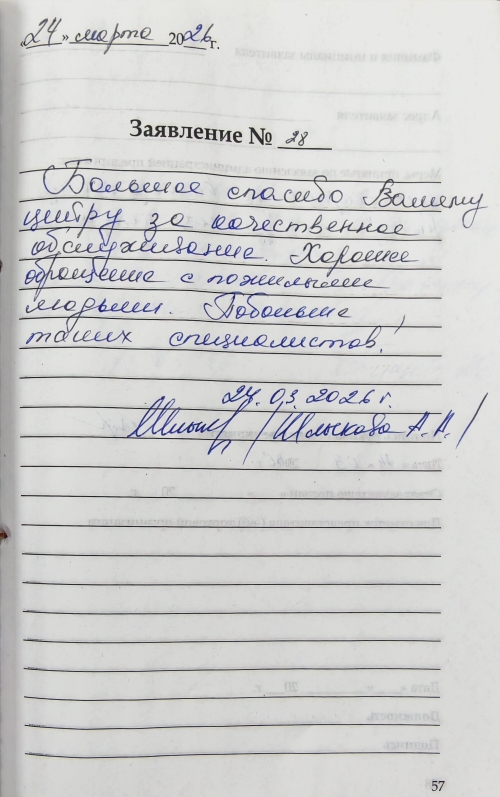 «24» марта 2026 г.
Заявление № 28
Большое спасибо Вашему
центру за качественное
обслуживание. Хорошее
обращение с пожилыми
людьми. Побольше
таких специалистов!
24.03.2026 г.
/ Шлыкова А.Н. /
57